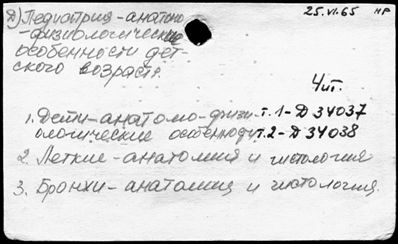 25.VI.65 НР
Д) Педиатрия-анатомо
-физиологические
особенности дет-
ского возраста.
Чит.
1. Дети-анатомо-физи- т.1-Д 34037
ологические особенности т.2-Д 34038
2. Легкие-анатомия и гистология
3. Бронхи-анатомия и гистология.